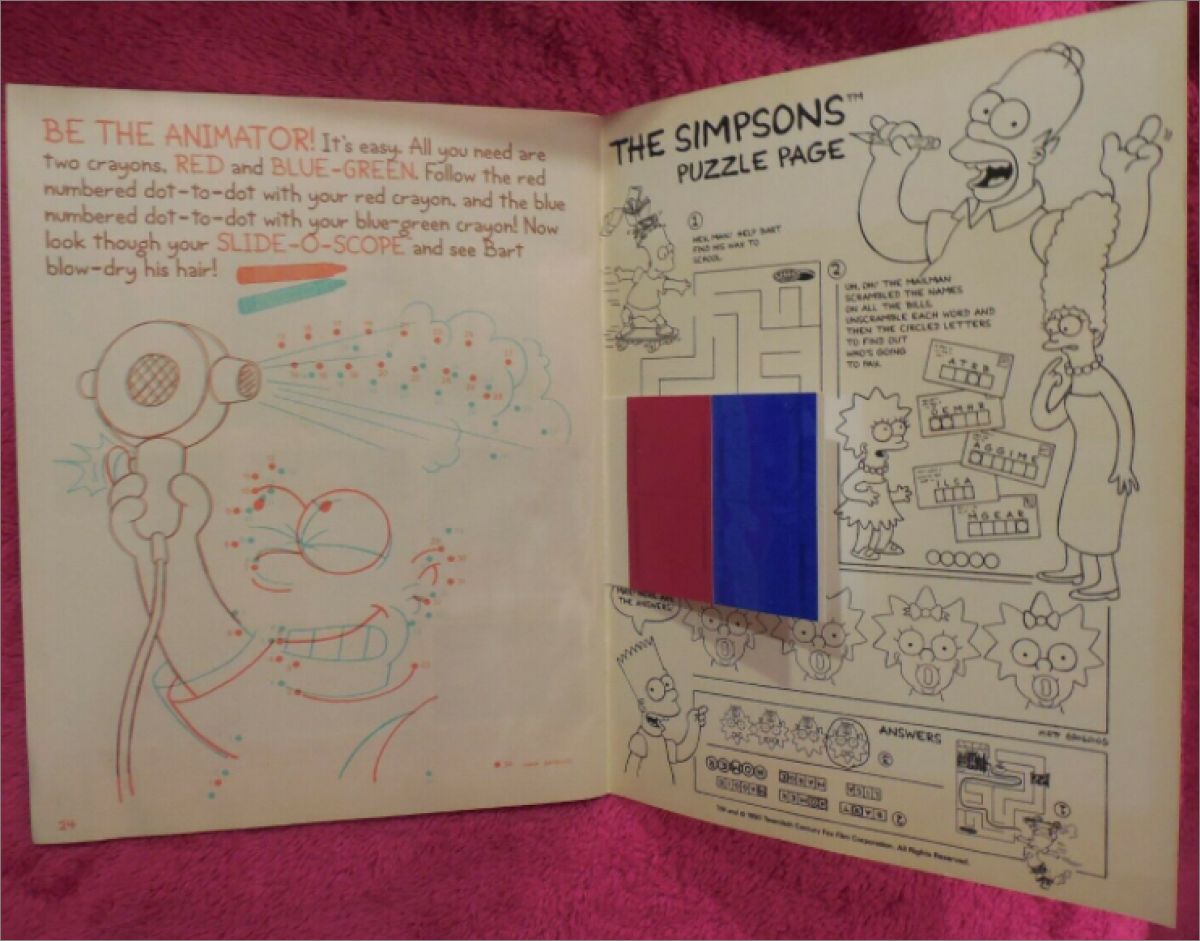 BE THE ANIMATOR! It's easy. All you need are
two crayons, RED and BLUE-GREEN. Follow the red
numbered dot-to-dot with your red crayon, and the blue
numbered dot-to-dot with your blue-green crayon! Now
look though your SLIDE-O-SCOPE and see Bart
blow-dry his hair!
24
THE SIMPSONS™
PUZZLE PAGE
1
HEY, MAN! HELP BART
FIND HIS WAY TO
SCHOOL.
2
UH, OH! THE MAILMAN
SCRAMBLED THE NAMES
ON ALL THE BILLS.
UNSCRAMBLE EACH WORD AND
THEN THE CIRCLED LETTERS
TO FIND OUT
WHO'S GOING
TO PAY.
ATRB
OEMHR
AGGIME
ILSA
MGEAR
THE ANSWERS!
MATT GROENING
ANSWERS
3
HOMER
MARGE
LISA
MAGGIE
HOMER
BART
2
1
TM and © 1990 Twentieth Century Fox Film Corporation. All Rights Reserved.